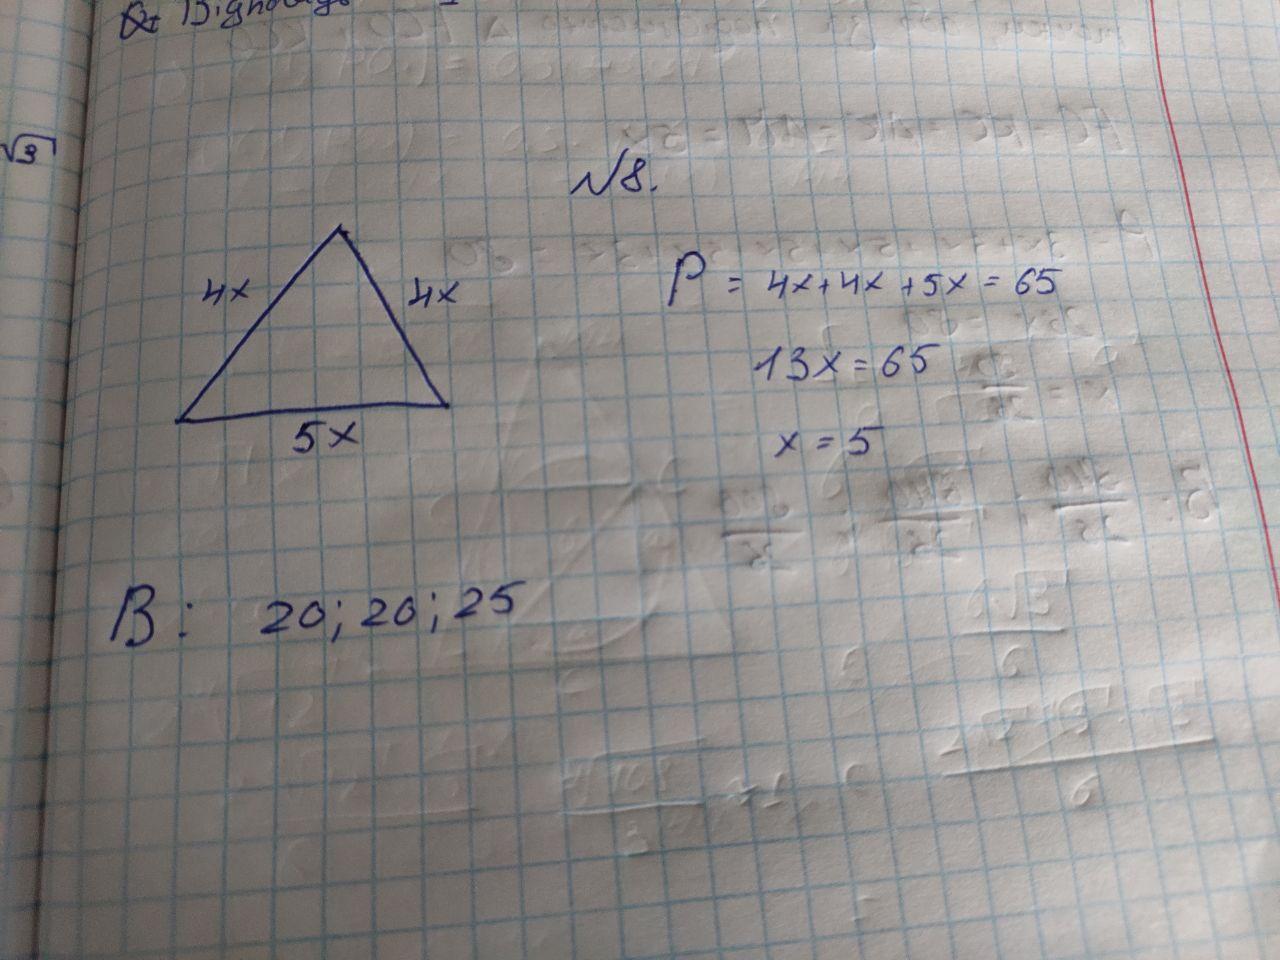 √3
№8.
4x
4x
5x
P = 4x+4x+5x=65
13x=65
x=5
В: 20; 20; 25